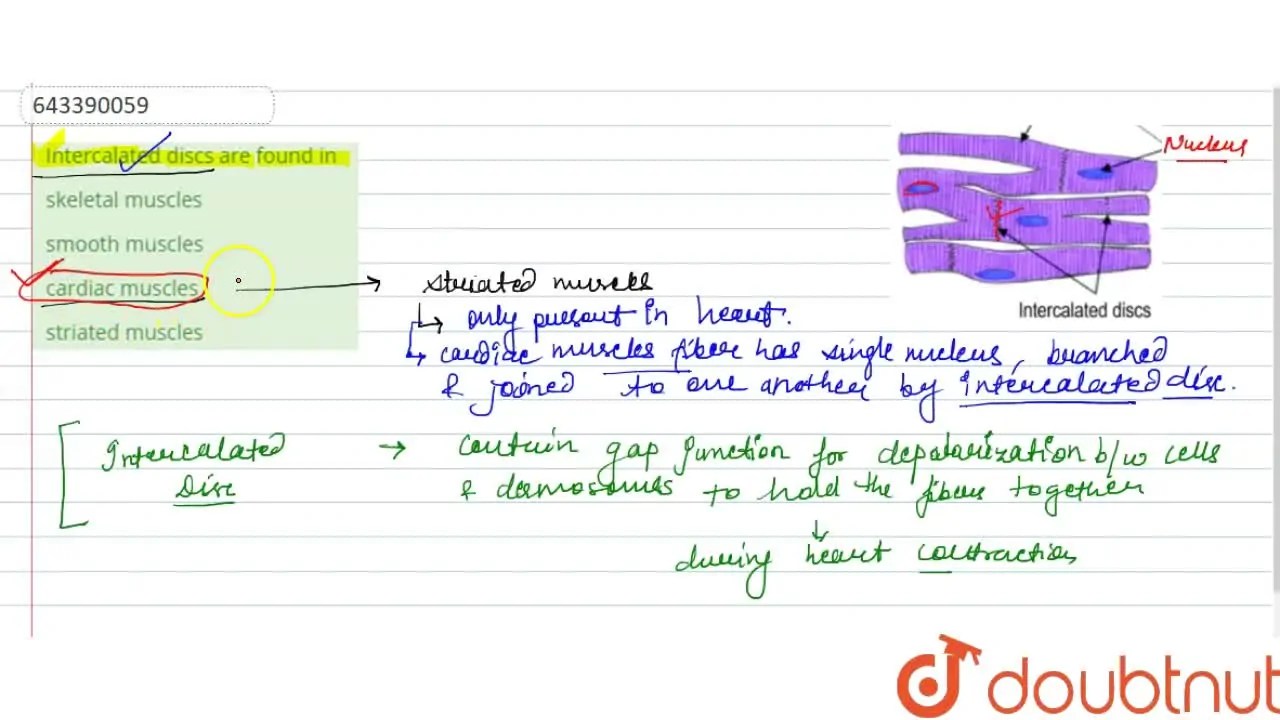 643390059
Intercalated discs are found in
skeletal muscles
smooth muscles
cardiac muscles
striated muscles
Nucleus
Intercalated discs
striated muscles
only present in heart.
cardiac muscles fibre has single nucleus, branched
& joined to one another by intercalated disc.
Intercalated
Disc
contain gap junction for depolarization b/w cells
& desmosomes to hold the fibres together
during heart contraction
doubtnut